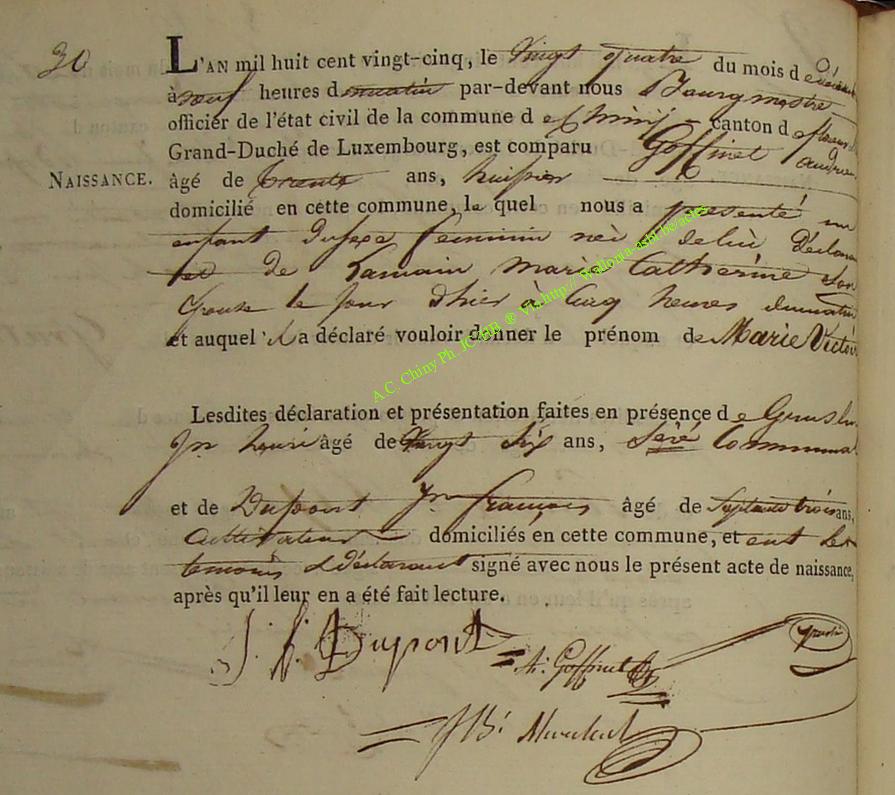 30
L'AN mil huit cent vingt-cinq, le vingt quatre du mois d
à neuf heures du matin par-devant nous Bourgmestre
officier de l'état civil de la commune de Chiny canton de
Grand-Duché de Luxembourg, est comparu Goffinet
NAISSANCE. âgé de trente ans, huissier
domicilié en cette commune, le quel nous a presenté un
enfant du sexe feminin né de lui déclarant
et de Lamain Marie Catherine son
Epouse le jour d'hier à cinq heures du matin
et auquel il a déclaré vouloir donner le prénom de Marie
Lesdites déclaration et présentation faites en présence de
Jn henri âgé de vingt six ans, Communal
et de Dupont Jn françois âgé de septante trois ans,
cultivateur domiciliés en cette commune, et ont les
temoins & declarant signé avec nous le présent acte de naissance,
après qu'il leur en a été fait lecture.
J. f. Dupont
A. Goffinet
A.C. Chiny Ph. JCHBH ® via http:// wallonia-asbl.be/actes